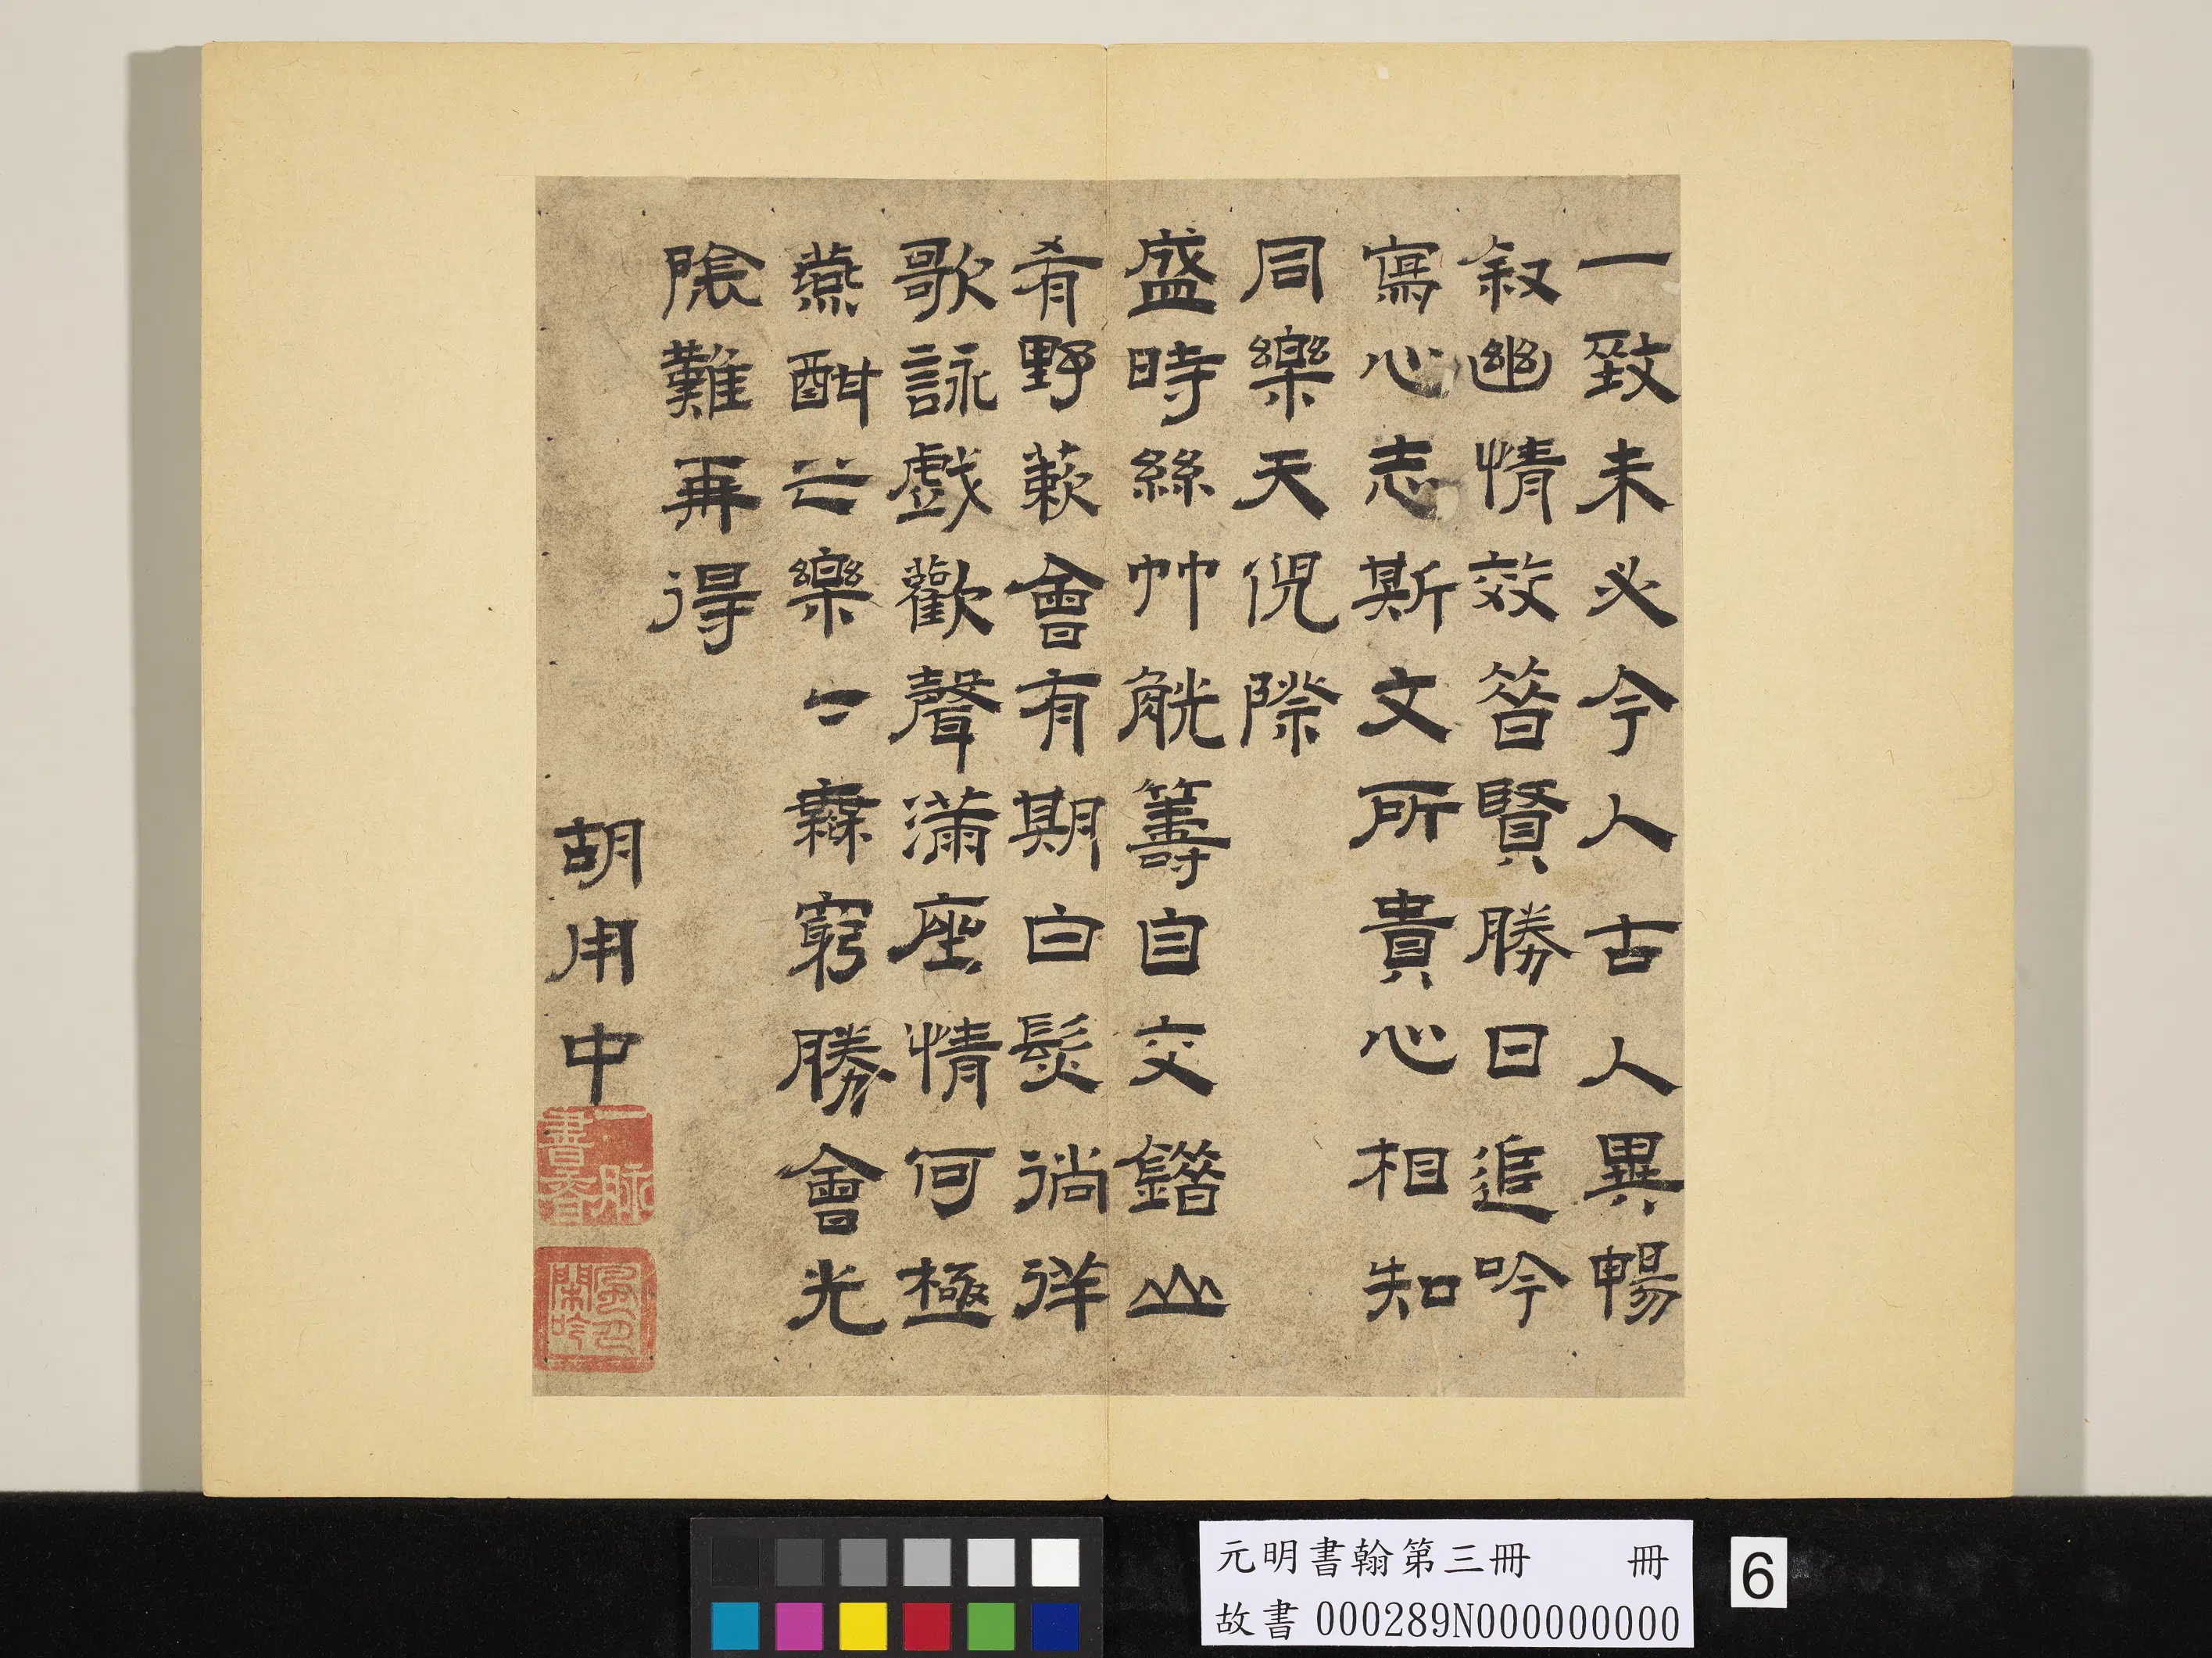 一致未必今人古人異暢
叙幽情效昔賢勝日追吟
寫心志斯文所貴心相知
同樂天倪際
盛時絲竹觥籌自交錯山
肴野蔌會有期白髮徜徉
歌詠戲歡聲滿座情何極
燕酣之樂〻無窮勝會光
陰難再得
胡用中
一脈書香
風月閒吟
元明書翰第三冊 冊
故書 000289N000000000
6